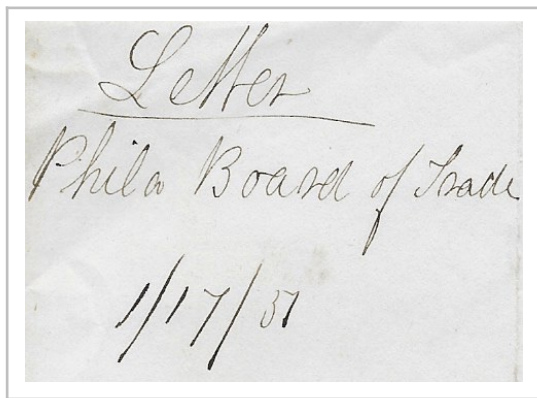 Letter
Phila Board of Trade
1/17/51